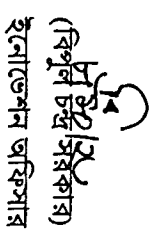 (বিপুল চন্দ্র সরকার)
ইনোভেশন অফিসার